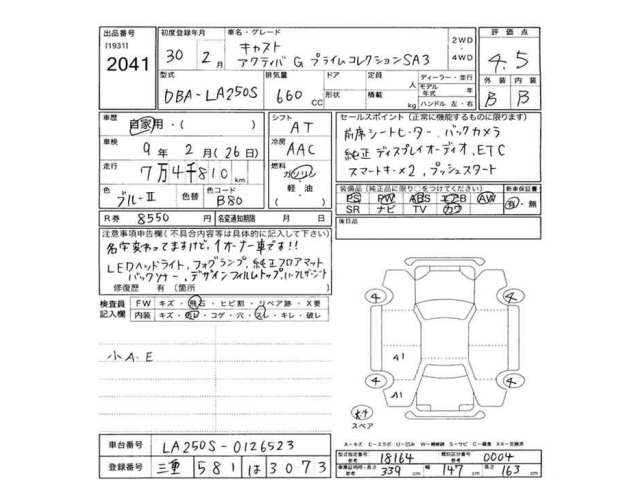 出品番号 初度登録年月 車名・グレード 評価点
[1931] 2041 30年 2月 キャスト アクティバ G プライムコレクションSA3 2WD・4WD 4.5
型式 排気量 ドア 定員 ディーラー・並行 外装 内装
DBA-LA250S 660CC 形状 積載 人 kg モデル年式 年 ハンドル 左・右 B B
車歴 自家用・( ) シフト AT セールスポイント(正常に機能するものに限ります)
車検 9年 2月 (26日) 冷房 AAC 前席シートヒーター.バックカメラ
純正ディスプレイオーディオ.ETC
走行 7万4千810km 燃料 ガソリン・軽油・( ) スマートキー×2.プッシュスタート
色 ブルーⅡ 色替 色コード B80 装備品(純正品に限り○をつけてください) 新車保証書
PS PW ABS エアB AW 有・無
SR ナビ TV カワ
R券 8550円 名変通知期限 月 日 後日品
注意事項申告欄(不具合内容等は具体的に記入して下さい)
名字変わってますけど、1オーナー車です!!
LEDヘッドライト.フォグランプ.純正フロアマット
バックソナー.デザインフィルムトップ.
修復歴 有(箇所 )
検査員記入欄 FW キズ・飛石・ヒビ割・リペア跡・X要
内装 キズ・汚レ・コゲ・穴・スレ・キレ・破レ
小A.E
4 4
A1
4 A1 4
スペア
A-キズ E-エクボ U-凹み W-補修跡 S-サビ C-腐食 XX-交換済
車台番号 LA250S-0126523 型式指定番号 参考 18164 類別区分番号 参考 0004
登録番号 三重 581 は 3073 車庫証明用:長さ 参考 339cm 幅 147cm 高さ 163cm